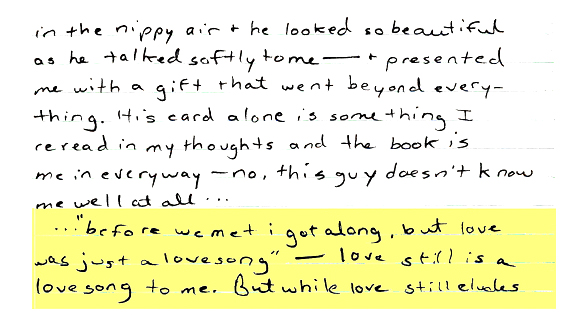 in the nippy air + he looked so beautiful
as he talked softly to me — + presented
me with a gift that went beyond every-
thing. His card alone is something I
reread in my thoughts and the book is
me in everyway — no, this guy doesn't know
me well at all ...
..."before we met i got along, but love
was just a lovesong" — love still is a
love song to me. But while love still eludes